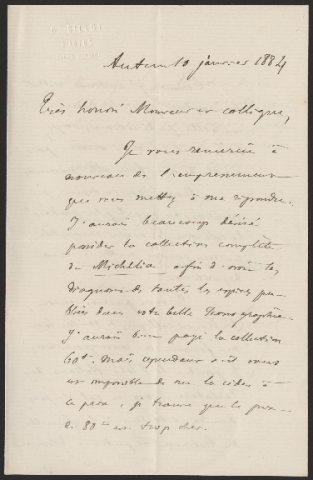 Autun 10 janvier 1884
Très honoré Monsieur et collègue,
Je vous remercie à
nouveau de l'empressement
que vous mettez à me répondre.
J'aurais beaucoup désiré
posséder la collection complète
du Michelia afin d'avoir les
diagnoses de toutes les espèces pu-
bliées dans votre belle monographie.
J'aurais bien payé la collection
60f. mais cependant s'il vous
est impossible de me la céder à
ce prix, je trouve que le prix
de 80 est trop cher.